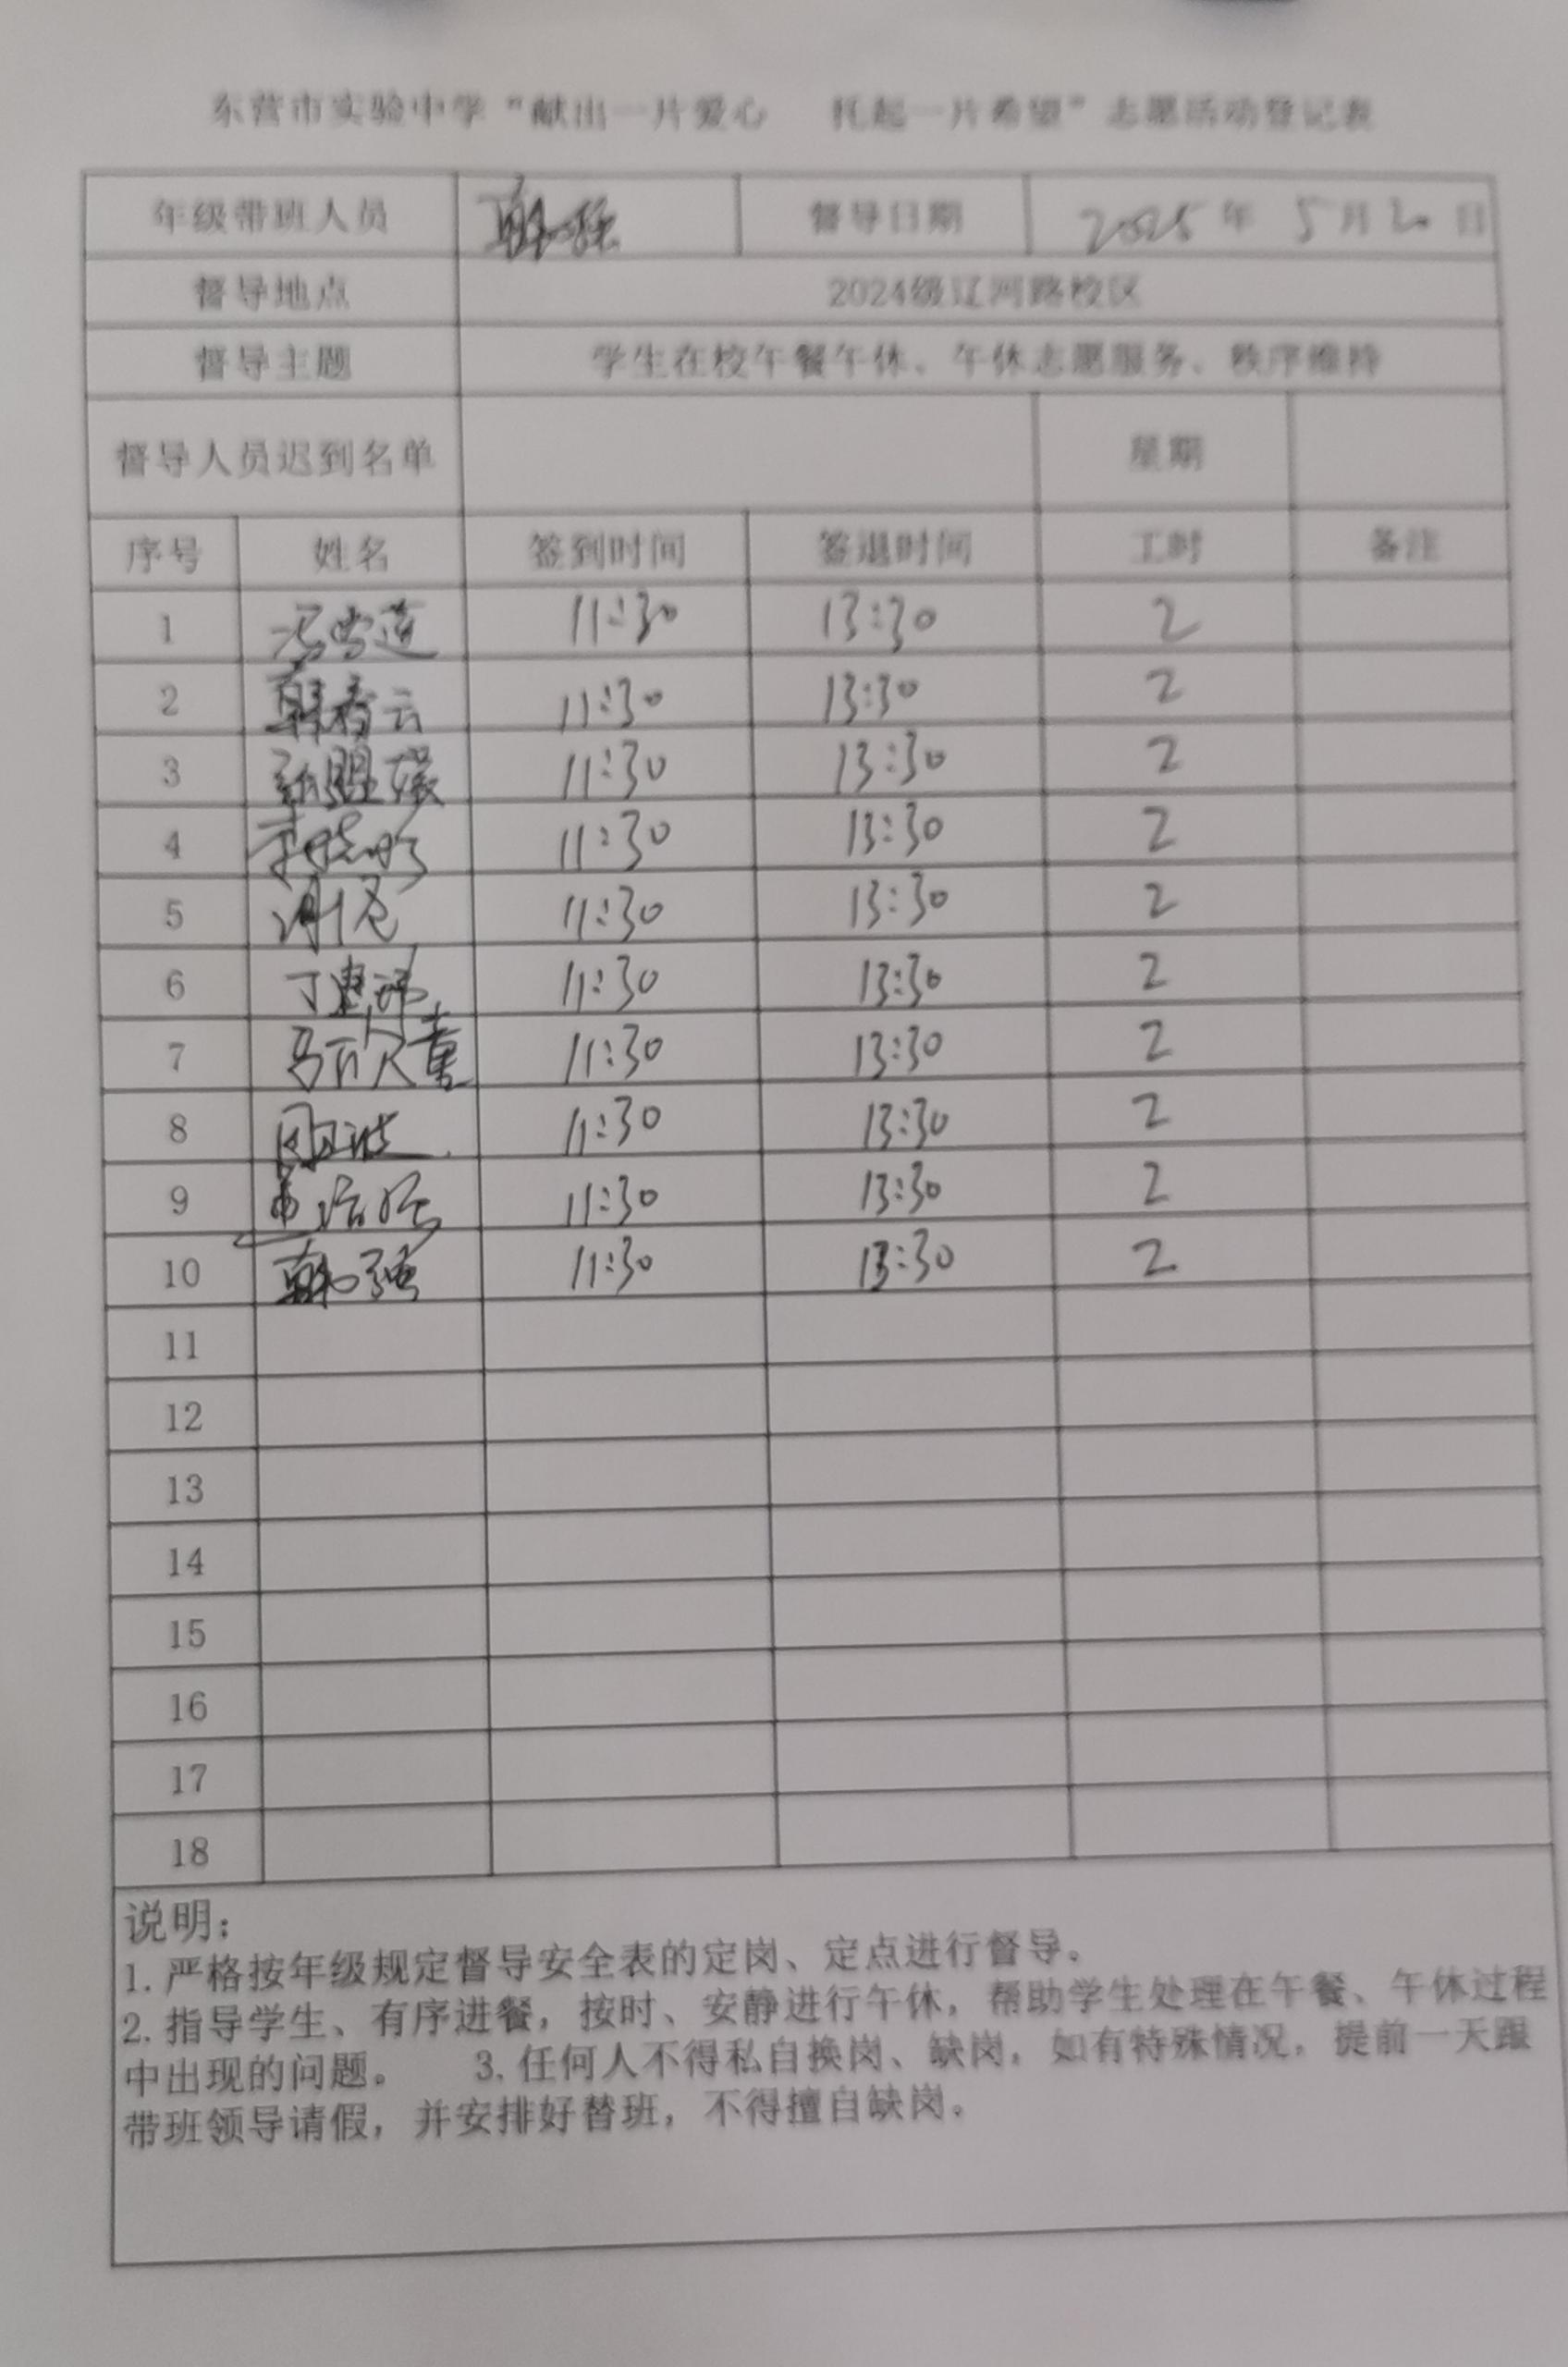 东营市实验中学“献出一片爱心 托起一片希望”志愿活动登记表
年级带班人员 韩强 督导日期 2025年 5月20日
督导地点 2024级辽河路校区
督导主题 学生在校午餐午休、午休志愿服务、秩序维持
督导人员迟到名单 星期
序号 姓名 签到时间 签退时间 工时 备注
1 冯雪莲 11:30 13:30 2
2 韩春云 11:30 13:30 2
3 11:30 13:30 2
4 李晓明 11:30 13:30 2
5 11:30 13:30 2
6 丁 11:30 13:30 2
7 马欣童 11:30 13:30 2
8 11:30 13:30 2
9 11:30 13:30 2
10 韩强 11:30 13:30 2
11
12
13
14
15
16
17
18
说明：
1. 严格按年级规定督导安全表的定岗、定点进行督导。
2. 指导学生、有序进餐，按时、安静进行午休，帮助学生处理在午餐、午休过程
中出现的问题。 3. 任何人不得私自换岗、缺岗，如有特殊情况，提前一天跟
带班领导请假，并安排好替班，不得擅自缺岗。